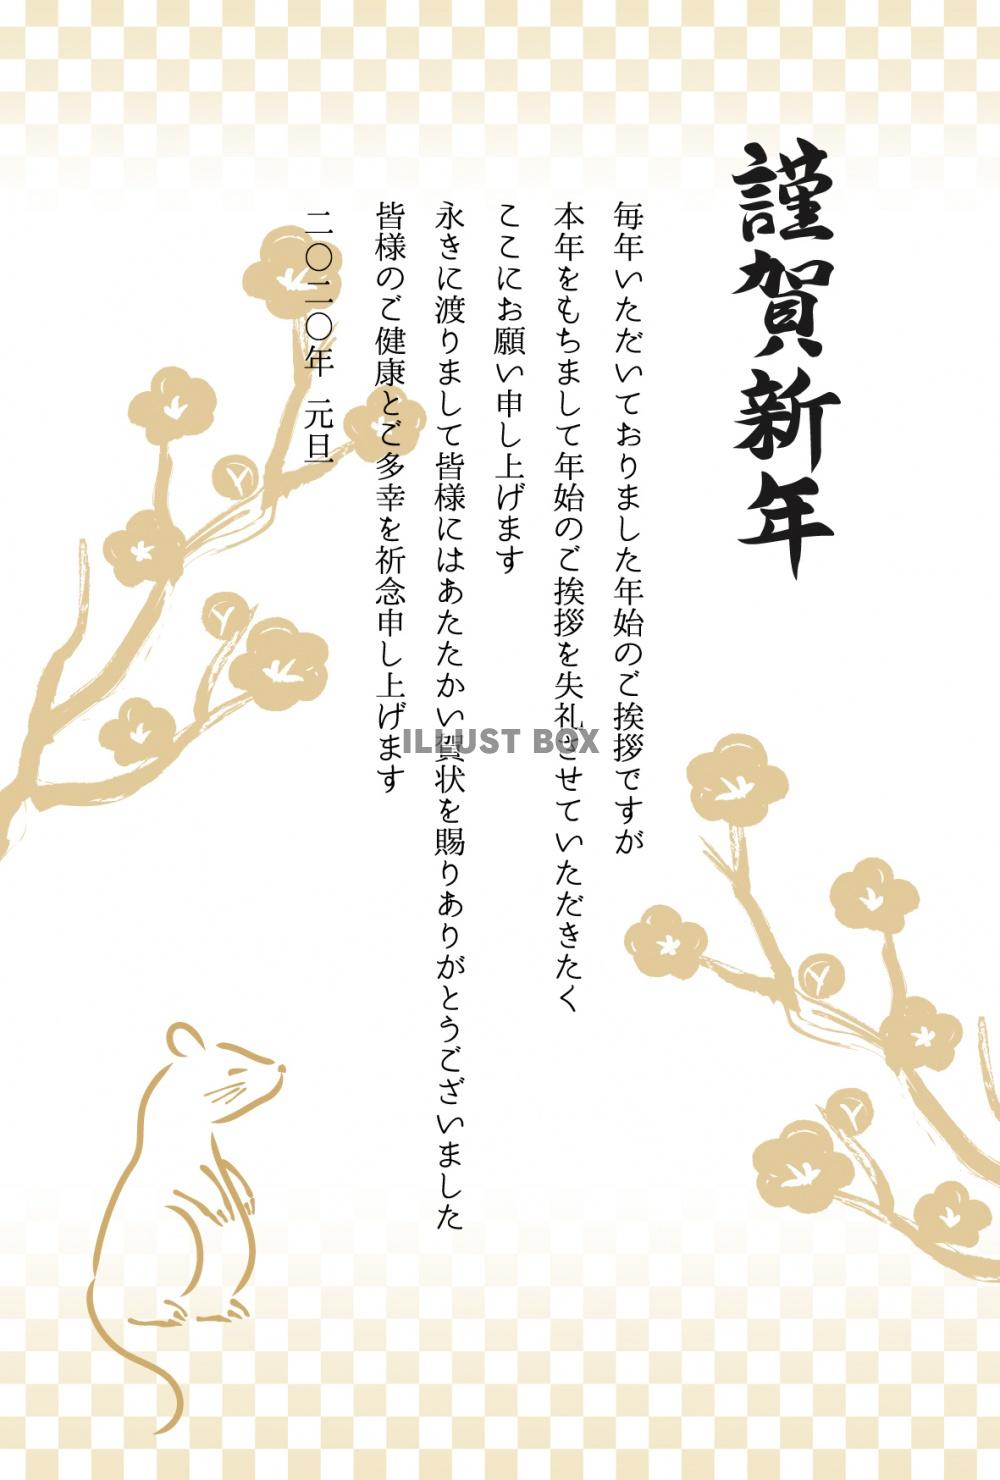 謹賀新年
毎年いただいておりました年始のご挨拶ですが
本年をもちまして年始のご挨拶を失礼させていただきたく
ここにお願い申し上げます
永きに渡りまして皆様にはあたたかい賀状を賜りありがとうございました
皆様のご健康とご多幸を祈念申し上げます
二〇二〇年 元旦
ILLUST BOX